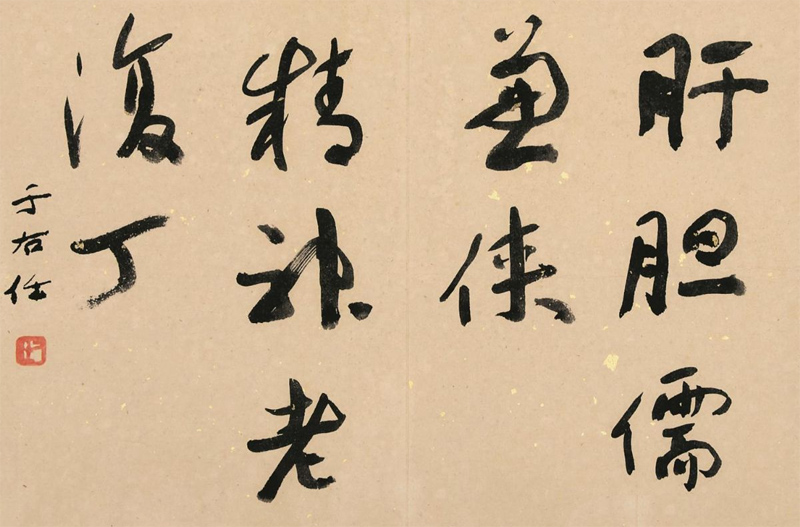 肝胆儒
兼侠
精神老
复丁
于右任